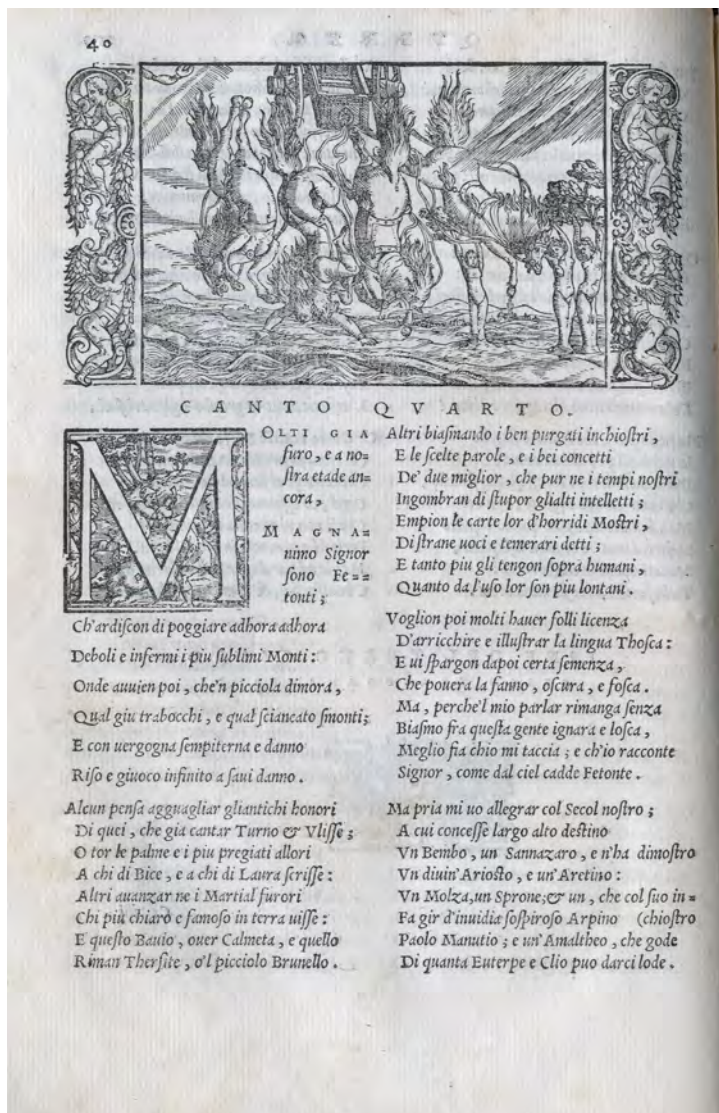 40
CANTO QVARTO.
MOLTI GIA
furo, e a no=
ſtra etade an=
cora,
MAGNA=
nimo Signor
ſono Fe==
tonti;
Ch'ardiſcon di poggiare adhora adhora
Deboli e infermi i piu ſublimi Monti:
Onde auuien poi, che'n picciola dimora,
Qual giu trabocchi, e qual ſciancato ſmonti;
E con uergogna ſempiterna e danno
Riſo e giuoco infinito a ſaui danno.
Alcun penſa agguagliar gliantichi honori
Di quei, che già cantar Turno & Vliſſe;
O tor le palme e i piu pregiati allori
A chi di Bice, e a chi di Laura ſcriſſe:
Altri auanzar ne i Martial furori
Chi più chiaro e famoſo in terra uiſſe:
E queſto Bauio, ouer Calmeta, e quello
Riman Therſite, o'l picciolo Brunello.
Altri biaſmando i ben purgati inchioſtri,
E le ſcelte parole, e i bei concetti
De' due miglior, che pur ne i tempi noſtri
Ingombran di ſtupor glialti intelletti;
Empion le carte lor d'horridi Moſtri,
Di ſtrane uoci e temerari detti;
E tanto piu gli tengon ſopra humani,
Quanto da l'uſo lor ſon piu lontani.
Voglion poi molti hauer folli licenza
D'arricchire e illuſtrar la lingua Thoſca:
E ui ſpargon dapoi certa ſemenza,
Che pouera la fanno, oſcura, e foſca.
Ma, perche'l mio parlar rimanga ſenza
Biaſmo fra queſta gente ignara e loſca,
Meglio fia chio mi taccia; e ch'io racconte
Signor, come dal ciel cadde Fetonte.
Ma pria mi uo allegrar col Secol noſtro;
A cui conceſſe largo alto deſtino
Vn Bembo, un Sannazaro, e n'ha dimoſtro
Vn diuin'Arioſto, e un'Aretino:
Vn Molza, un Sprone; & un, che col ſuo in=
Fa gir d'inuidia ſoſpiroſo Arpino (chioſtro
Paolo Manutio; e un'Amaltheo, che gode
Di quanta Euterpe e Clio puo darci lode.